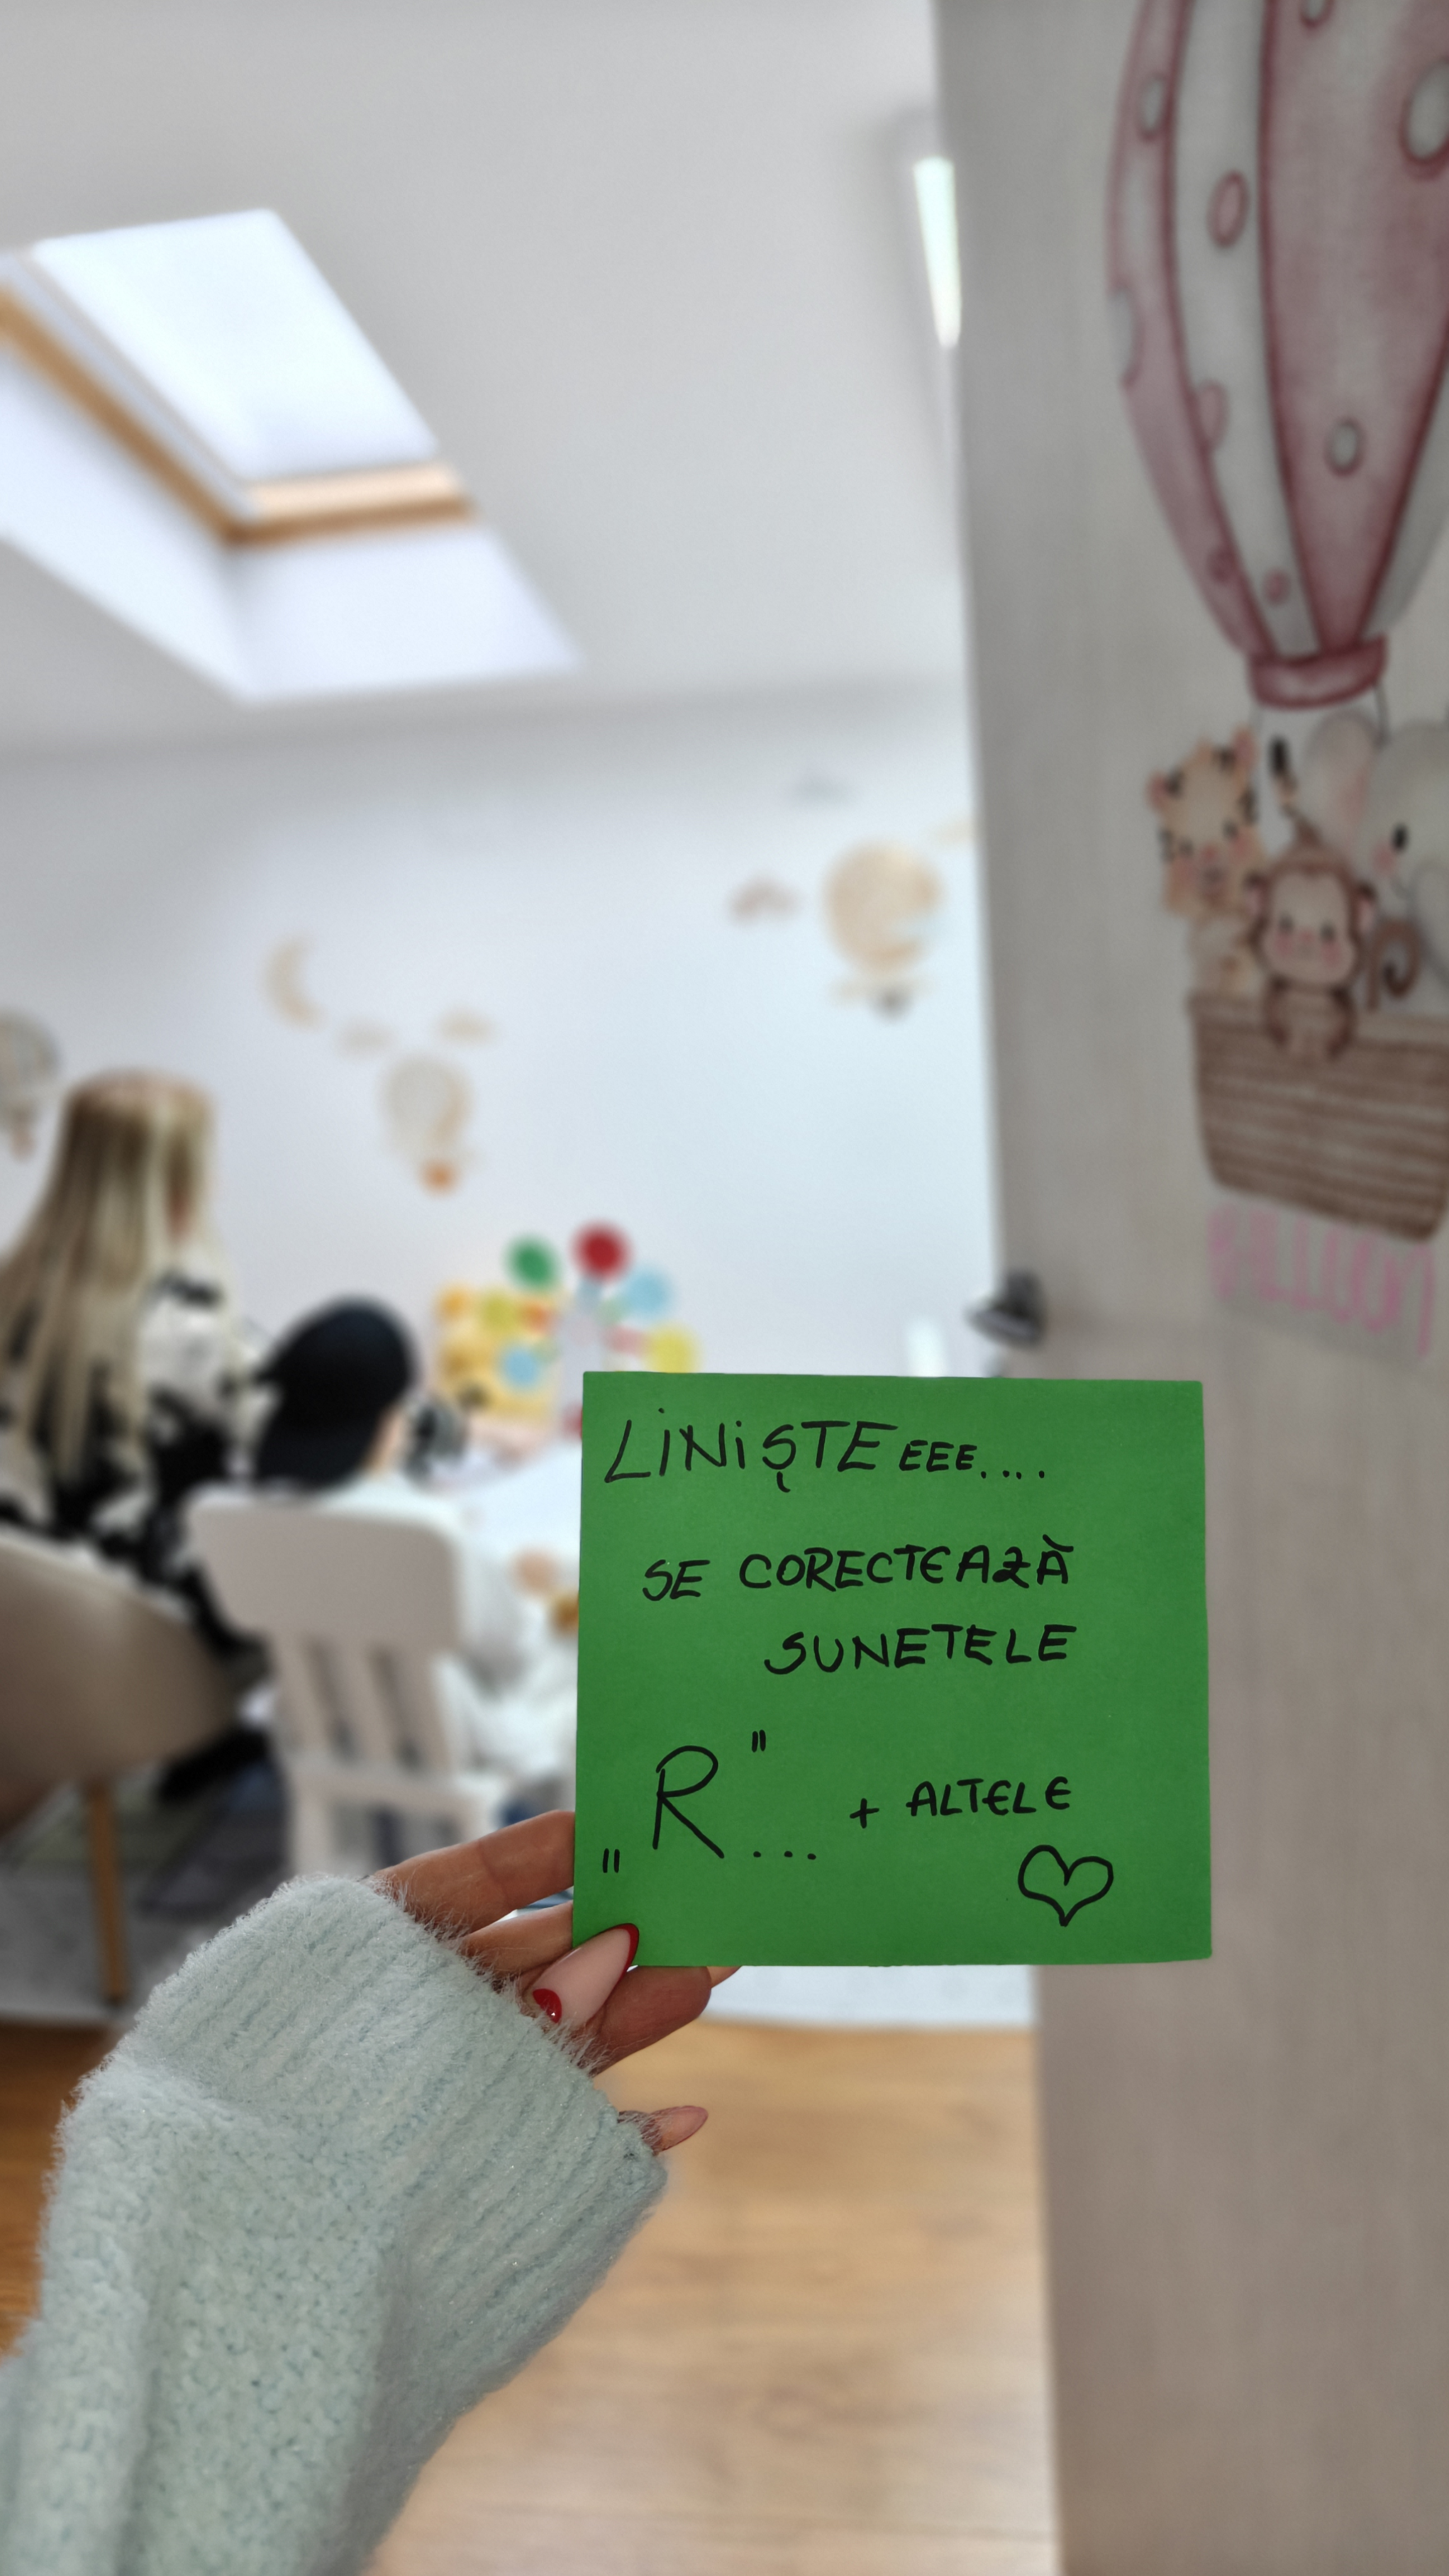 LiNiȘTE EEE....
SE CORECTEAZĂ
SUNETELE
„R"... + ALTELE